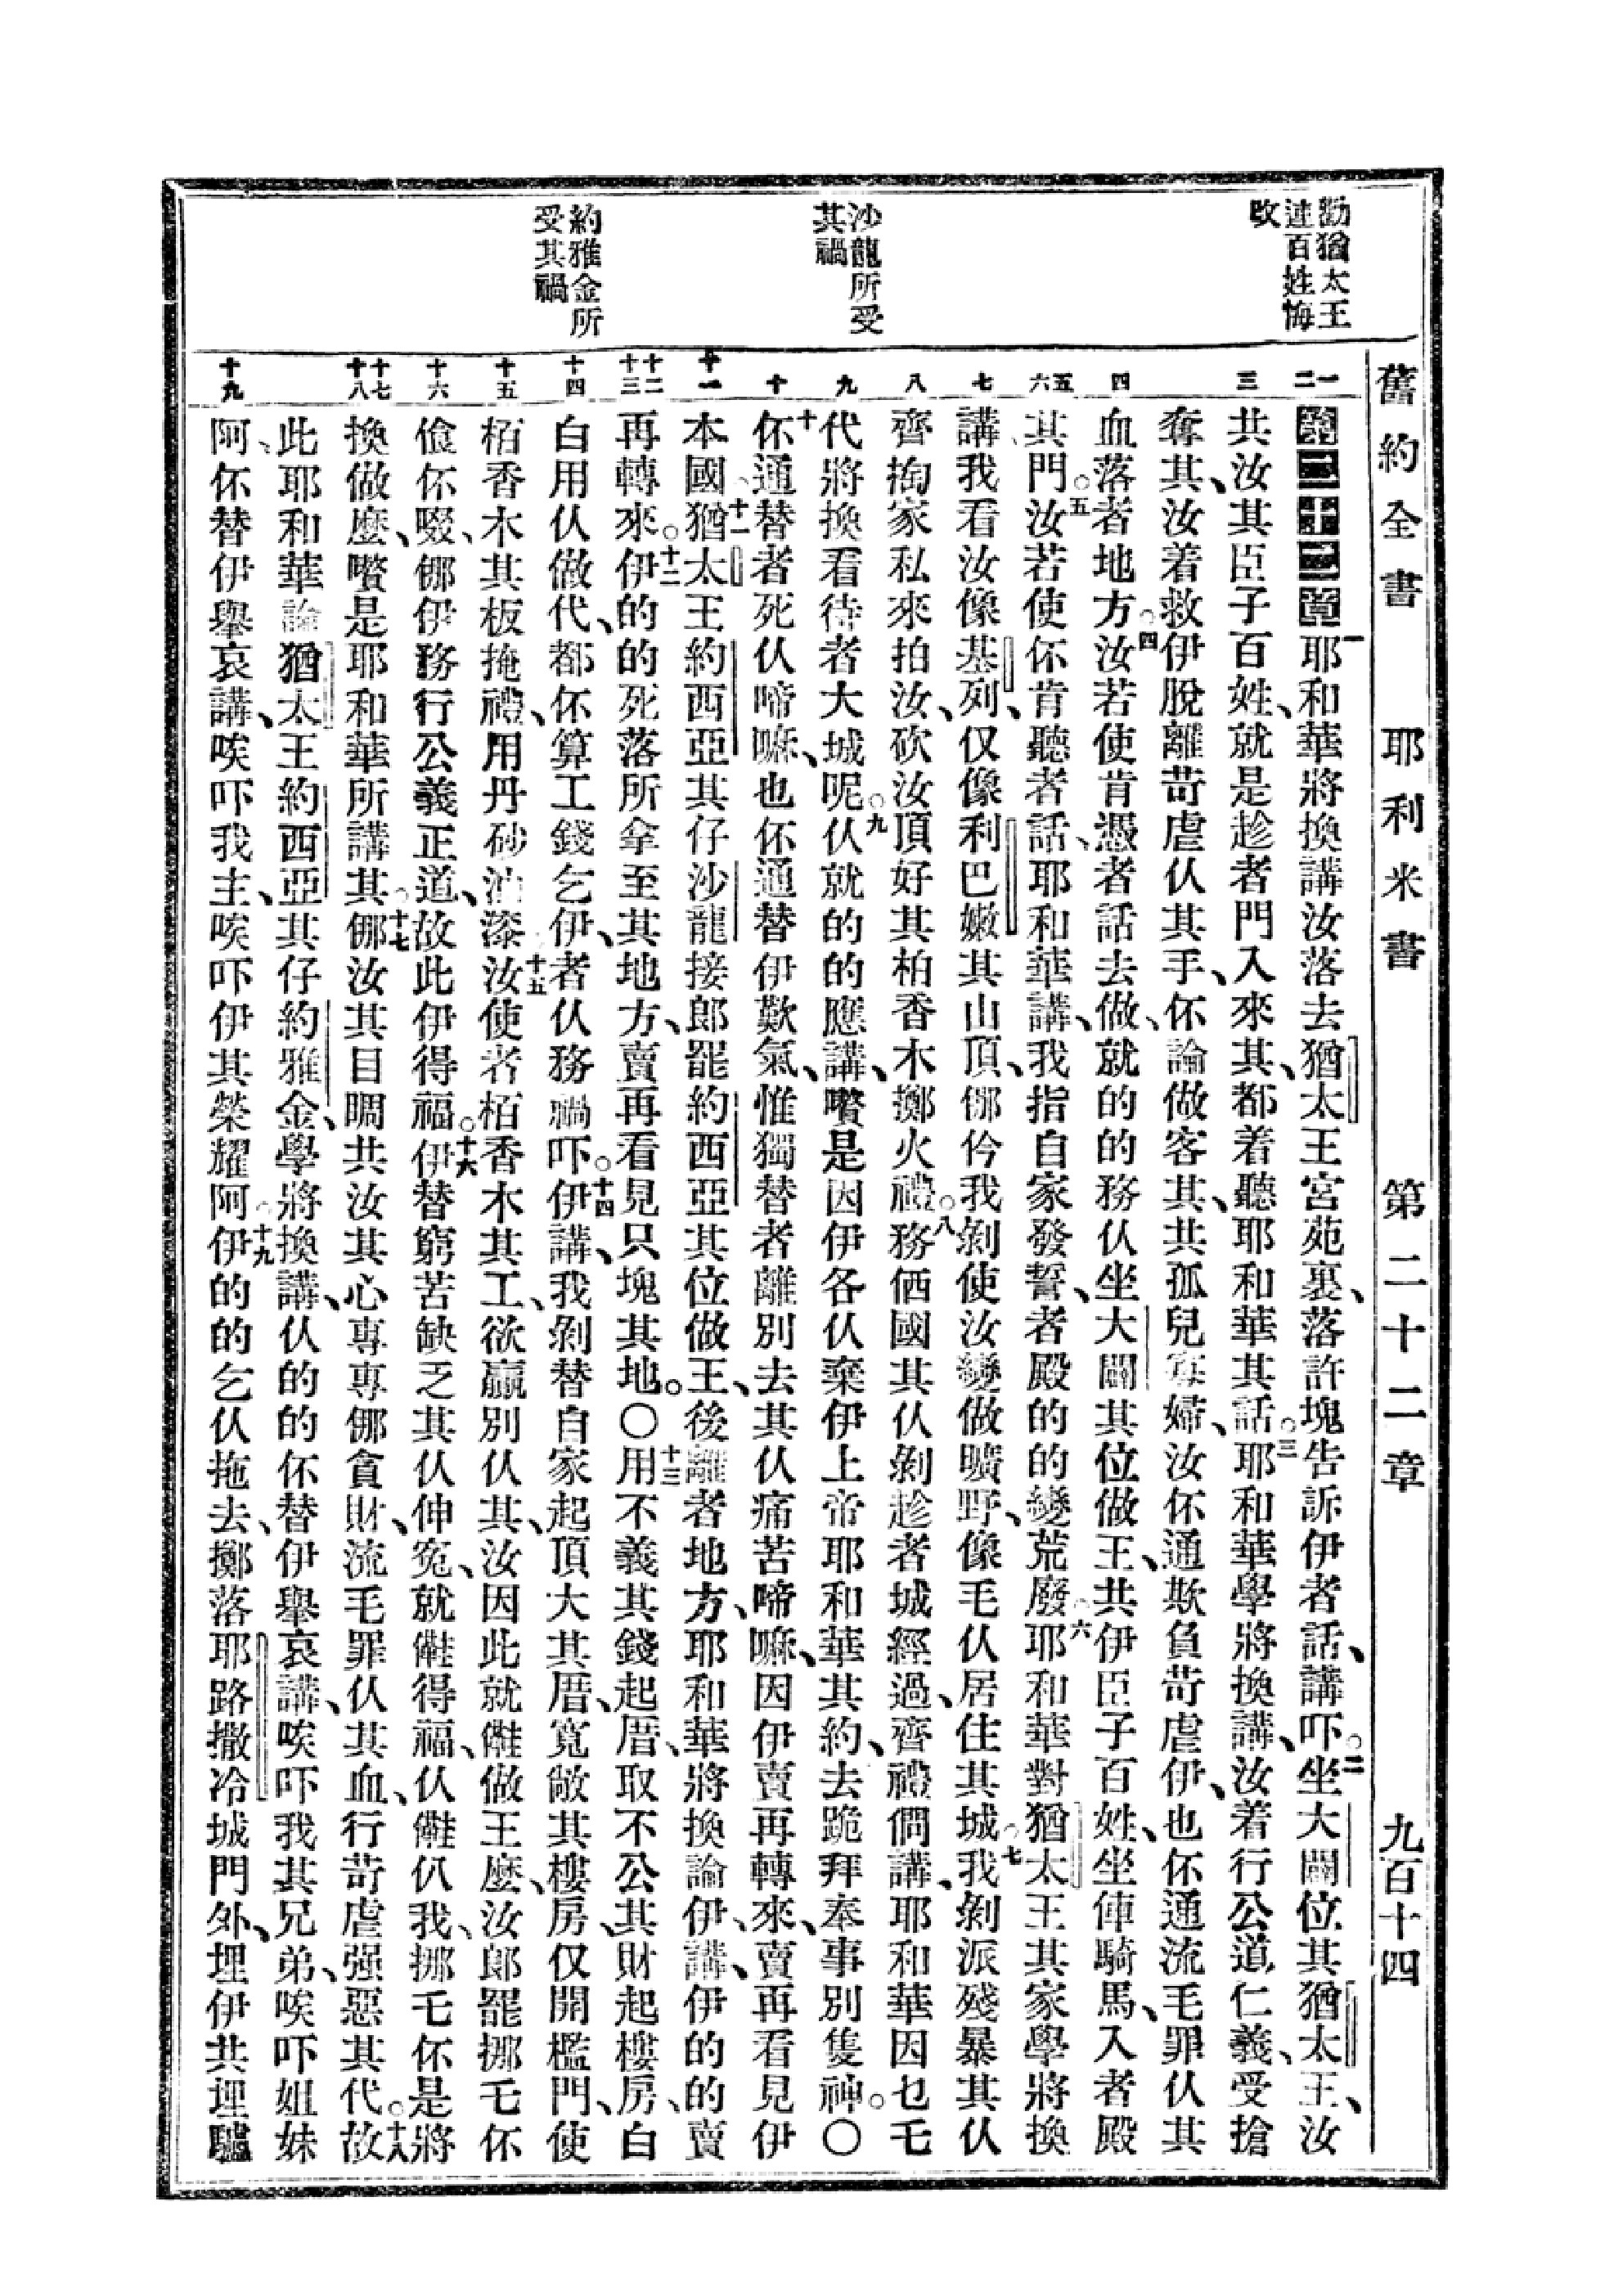 舊約全書　耶利米書　第二十二章　九百十四
勸猶太王
連百姓悔
改
沙龍所受
其禍
約雅金所
受其禍
一
二
三
四
五
六
七
八
九
十
十一
十二
十三
十四
十五
十六
十七
十八
十九
第二十二章一耶和華將換講汝落去猶太王宮苑裏、落許塊告訴伊者話、講吓。二坐大闢位其猶太王、汝
共汝其臣子百姓、就是趁者門入來其、都着聽耶和華其話。三耶和華學將換講、汝着行公道仁義、受搶
奪其、汝着救伊脫離苛虐仈其手、伓論做客其、共孤兒寡婦、汝伓通欺負苛虐伊、也伓通流毛罪仈其
血落者地方。四汝若使肯憑者話去做、就的的務仈坐大闢其位做王、共伊臣子百姓、坐俥騎馬、入者殿
其門。五汝若使伓肯聽者話、耶和華講、我指自家發誓、者殿的的變荒廢。六耶和華對猶太王其家學將換
講、我看汝像基列、仅像利巴嫩其山頂、㑚仱我剝使汝變做曠野、像毛仈居住其城。七我剝派殘暴其仈
齊掏家私來拍汝、砍汝頂好其柏香木擲火禮。八務㑚國其仈剝趁者城經過、齊禮僩講、耶和華因乜毛
代將換看待者大城呢。九仈就的的應講、嚽是因伊各仈棄伊上帝耶和華其約、去跪拜奉事別隻神。〇
十伓通替者死仈啼嘛、也伓通替伊歎氣、惟獨替者離別去其仈痛苦啼嘛、因伊賣再轉來、賣再看見伊
本國。十一猶太王約西亞其仔沙龍接郎罷約西亞其位做王、後離者地方、耶和華將換論伊、講、伊的的賣
再轉來。十二伊的的死落所拿至其地方、賣再看見只塊其地。〇十三用不義其錢起厝、取不公其財起樓房、白
白用仈做代、都伓算工錢乞伊、者仈務禍吓。十四伊講、我剝替自家起頂大其厝、寬敞其樓房、仅開檻門、使
栢香木其板掩禮、用丹砂油漆。十五汝使者栢香木其工、欲贏別仈其、汝因此就㒰做王麽、汝郎罷挪乇伓
飡伓啜、㑚伊務行公義正道、故此伊得福。十六伊替窮苦缺乏其仈伸冤、就㒰得福、仈㒰仈我、挪乇伓是將
換做麽、嚽是耶和華所講其。十七㑚汝其目睭共汝其心、專專㑚貪財、流毛罪仈其血、行苛虐强惡其代。十八故
此耶和華論猶太王約西亞其仔約雅金、學將換講、仈的的伓替伊舉哀講、唉吓我其兄弟、唉吓姐妹
阿、伓替伊舉哀講、唉吓我主、唉吓伊其榮耀阿。十九伊的的乞仈拖去、擲落耶路撒冷城門外、埋伊共埋驢